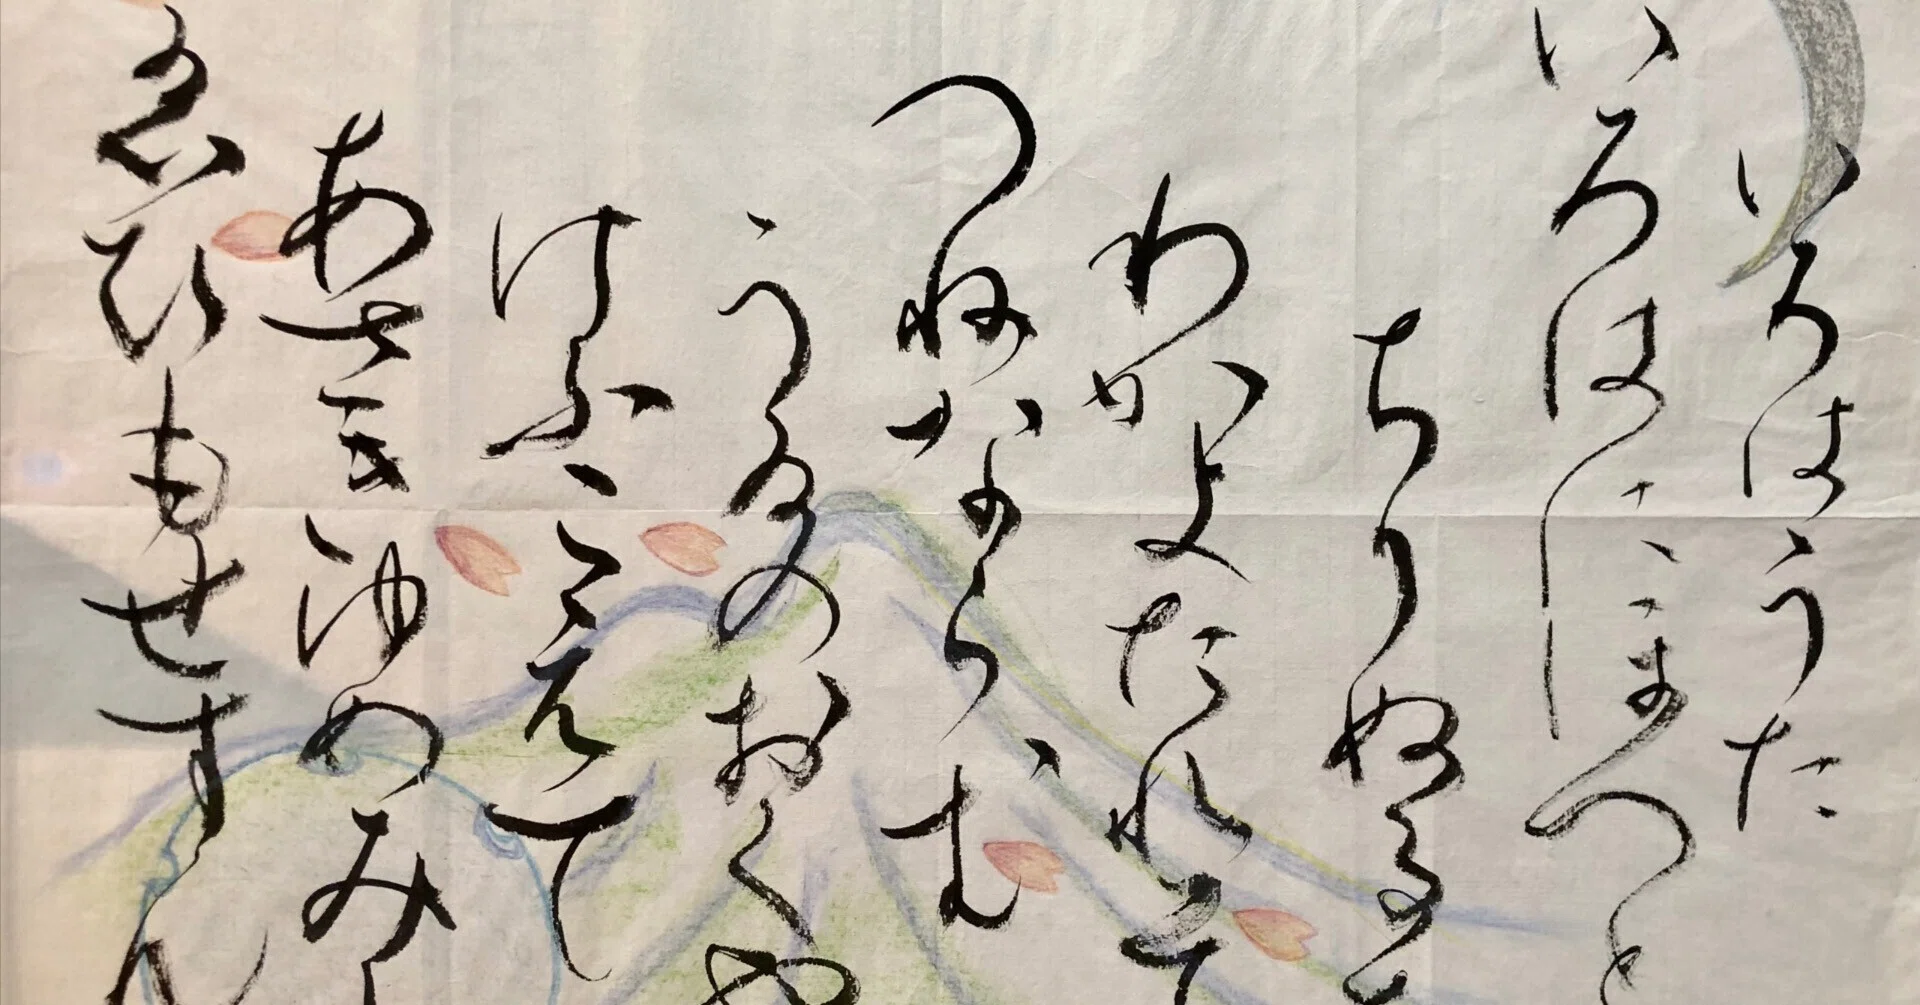 いろはうた
いろはにほへと
ちりぬる
わかよたれそ
つねならむ
うゐのおくや
けふこえて
あさきゆめみし
ゑひもせすん